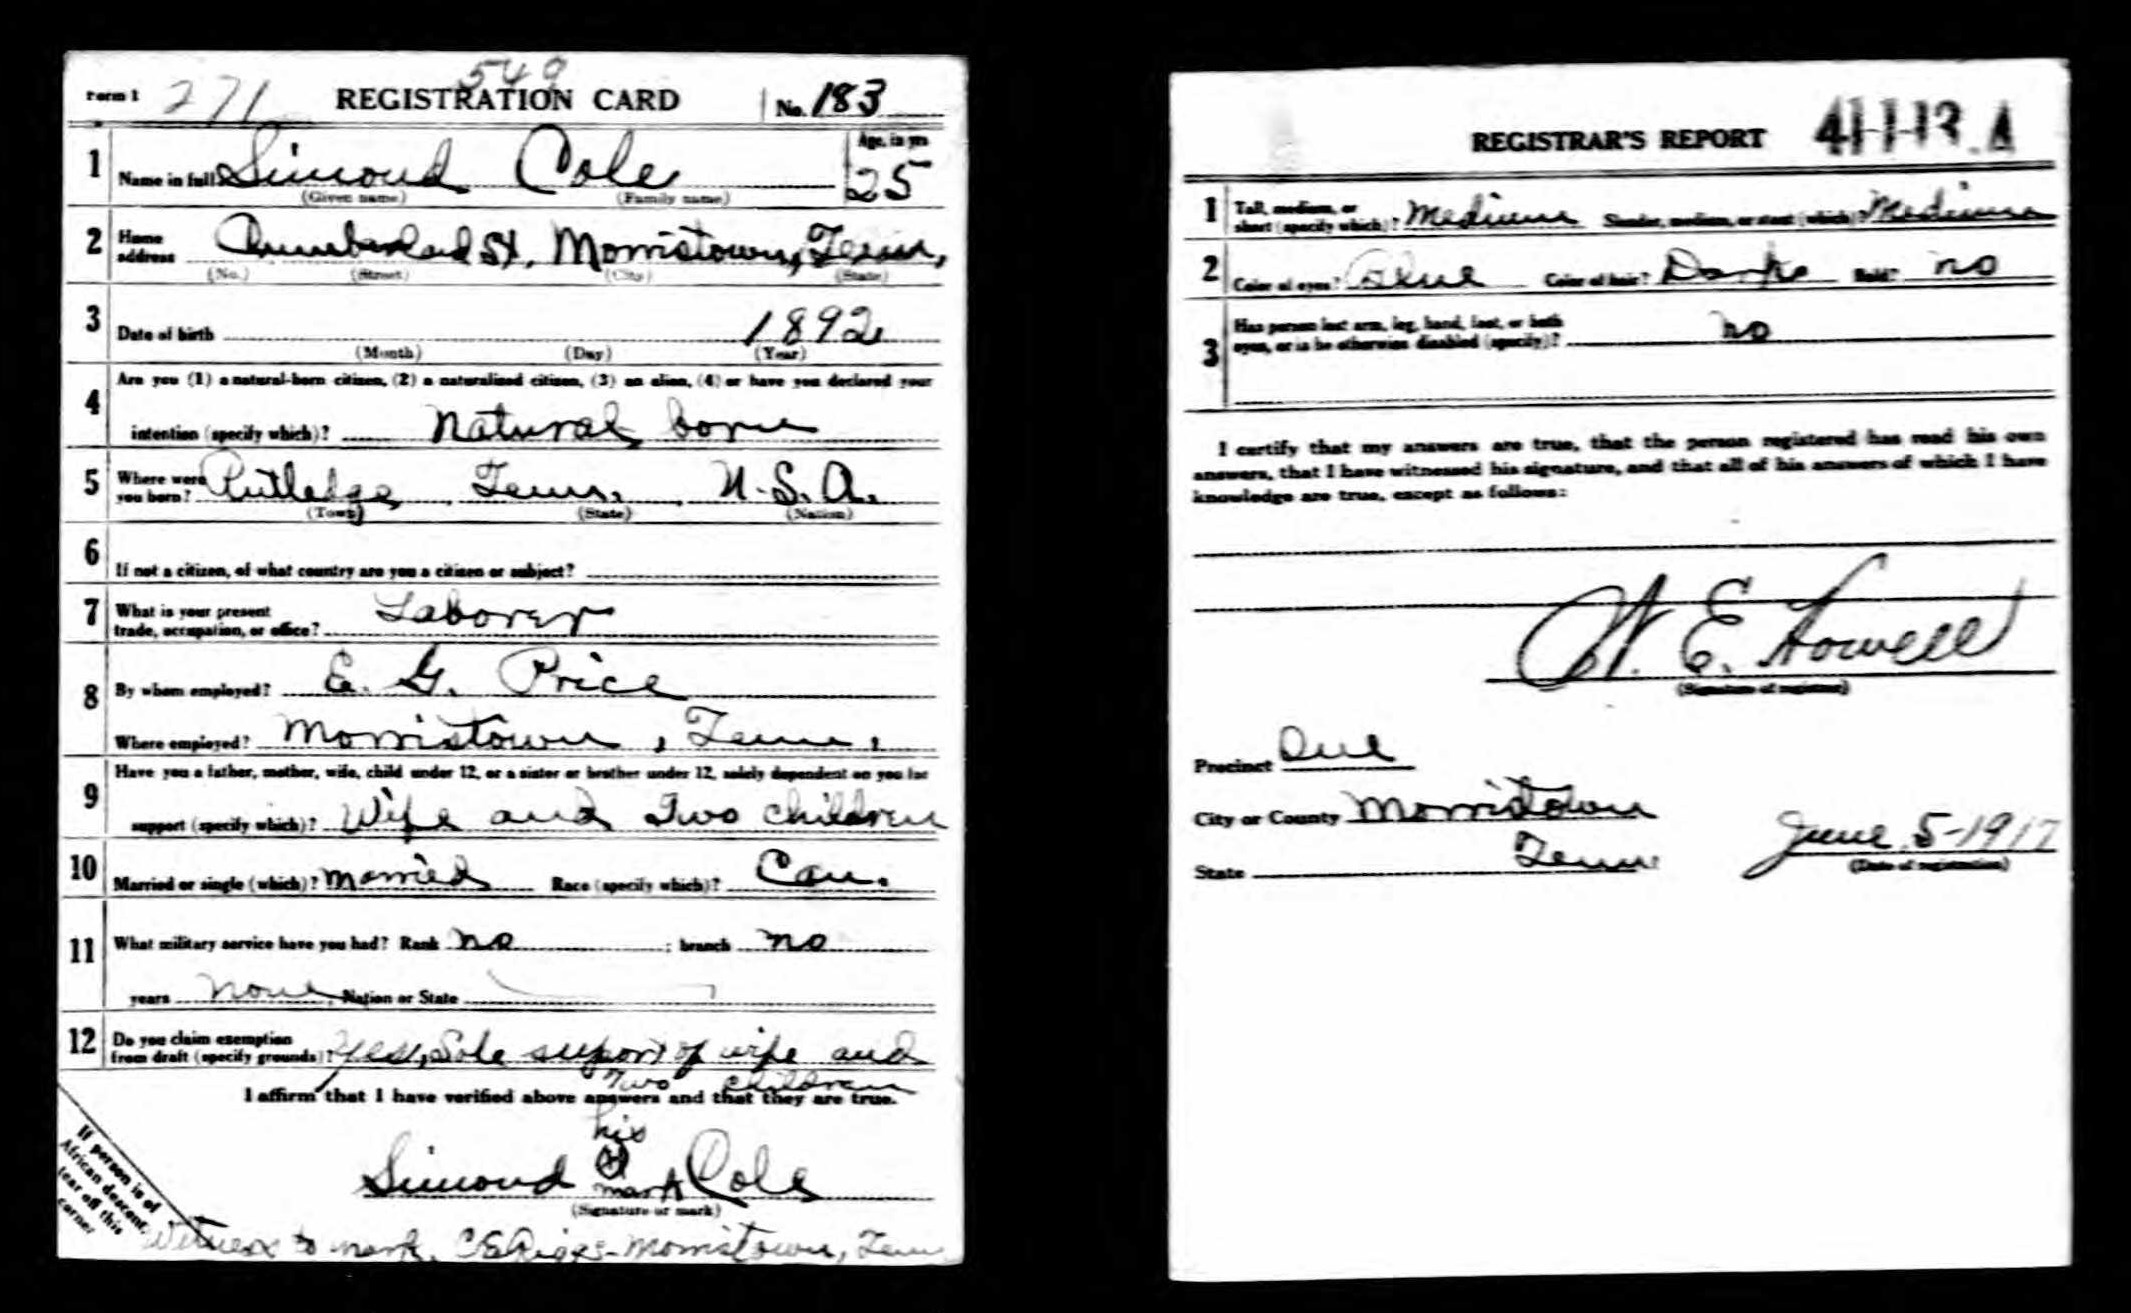 549
Form 1 271 REGISTRATION CARD No. 183
1 Name in full Simond Cole Age, in yrs 25
(Given name) (Family name)
2 Home address Cumberland St. Morristown, Tenn,
(No.) (Street) (City) (State)
3 Date of birth 1892
(Month) (Day) (Year)
4 Are you (1) a natural-born citizen, (2) a naturalized citizen, (3) an alien, (4) or have you declared your
intention (specify which)? Natural born
5 Where were you born? Rutledge Tenn. U.S.A.
(Town) (State) (Nation)
6 If not a citizen, of what country are you a citizen or subject?
7 What is your present trade, occupation, or office? Laborer
8 By whom employed? E. G. Price
Where employed? Morristown, Tenn,
9 Have you a father, mother, wife, child under 12, or a sister or brother under 12, solely dependent on you for
support (specify which)? Wife and Two children
10 Married or single (which)? Married Race (specify which)? Cau.
11 What military service have you had? Rank no ; branch no
years None Nation or State
12 Do you claim exemption from draft (specify grounds)? Yes, Sole support of wife and
Two children
I affirm that I have verified above answers and that they are true.
his
Simond X Cole
mark
(Signature or mark)
If person is of
African descent,
tear off this
corner
Witness to mark, C E Riggs - Morristown, Tenn
REGISTRAR'S REPORT 41-1-13. A
1 Tall, medium, or short (specify which)? Medium Slender, medium, or stout (which)? Medium
2 Color of eyes? Blue Color of hair? Dark Bald? no
3 Has person lost arm, leg, hand, foot, or both
eyes, or is he otherwise disabled (specify)? no
I certify that my answers are true, that the person registered has read his own
answers, that I have witnessed his signature, and that all of his answers of which I have
knowledge are true, except as follows:
W. E. Howell
(Signature of registrar)
Precinct One
City or County Morristown
State Tenn. June 5-1917
(Date of registration)